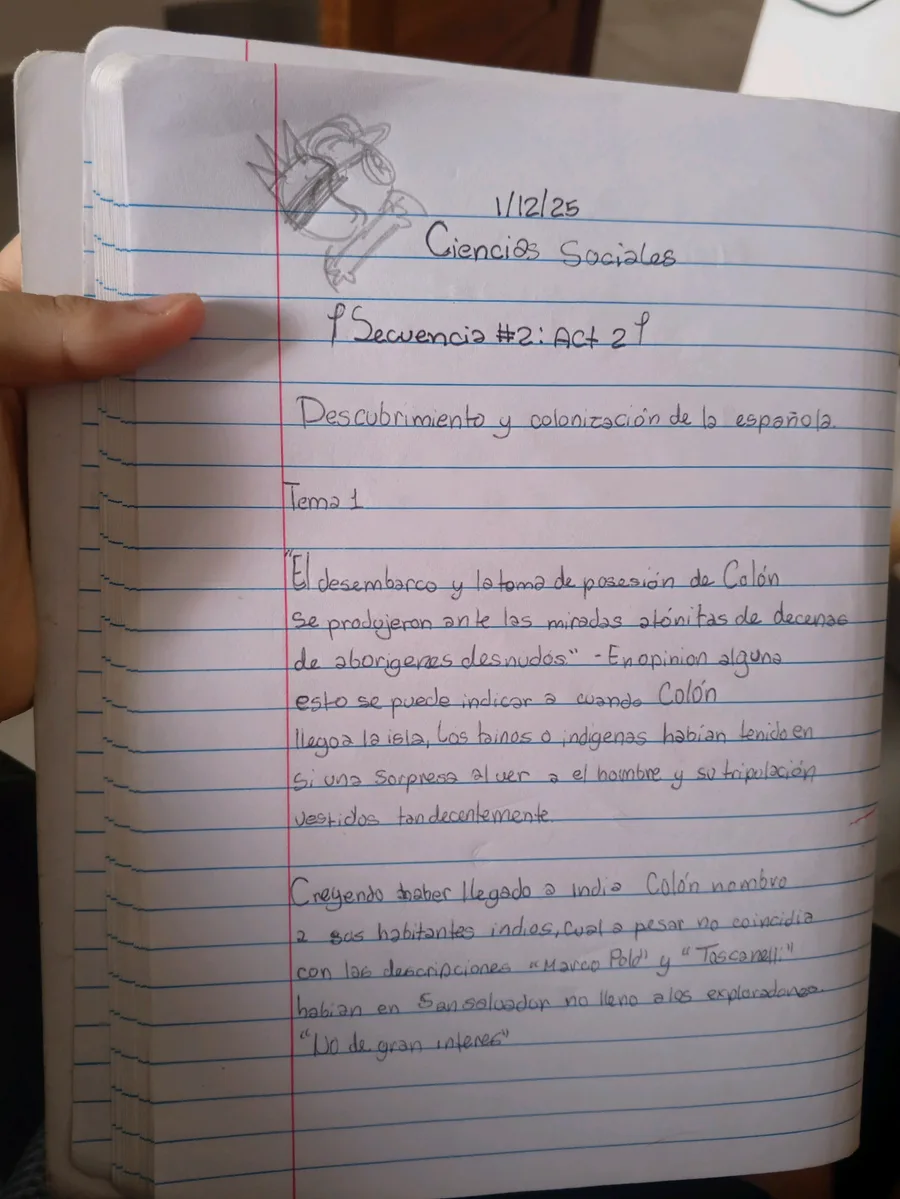 1/12/25
Ciencias Sociales
Secuencia #2: Act 2
Descubrimiento y colonización de la española.
Tema 1
"El desembarco y la toma de posesión de Colón
se produjeron ante las miradas atónitas de decenas
de aborigenes desnudos." - En opinion alguna
esto se puede indicar a cuando Colón
llego a la isla, Los tainos o indigenas habían tenido en
si una sorpresa al ver a el hombre y su tripulación
vestidos tan decentemente.
Creyendo haber llegado a india Colón nombro
a sus habitantes indios, cual a pesar no coincidia
con las descripciones "Marco Polo" y "Toscanelli."
habian en San salvador no lleno a los
"No de gran interes"